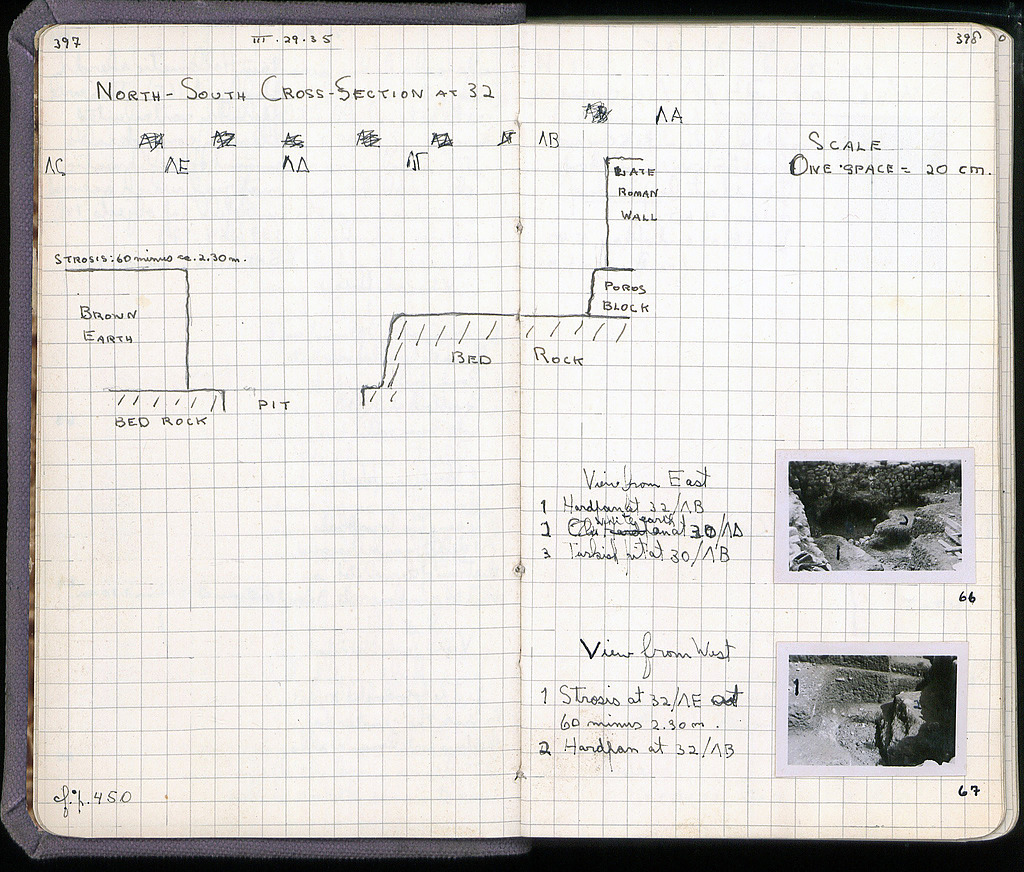 397
III.29.35
NORTH-SOUTH CROSS-SECTION AT 32
ΛϚ ΛΕ ΛΔ ΛΓ
STROSIS: 60 minus ca. 2.30 m.
BROWN
EARTH
BED ROCK
PIT
BED
cf. p. 450
398
ΛΒ ΛΑ
SCALE
ONE SPACE = 20 cm.
LATE
ROMAN
WALL
POROS
BLOCK
ROCK
View from East
1 Hardpan at 32/ΛΒ
2 white earth at 30/ΛΔ
3 Turkish pit at 30/ΛΒ
1
2
66
View from West
1 Strosis at 32/ΛΕ at
60 minus 2.30 m.
2 Hardpan at 32/ΛΒ
1
67